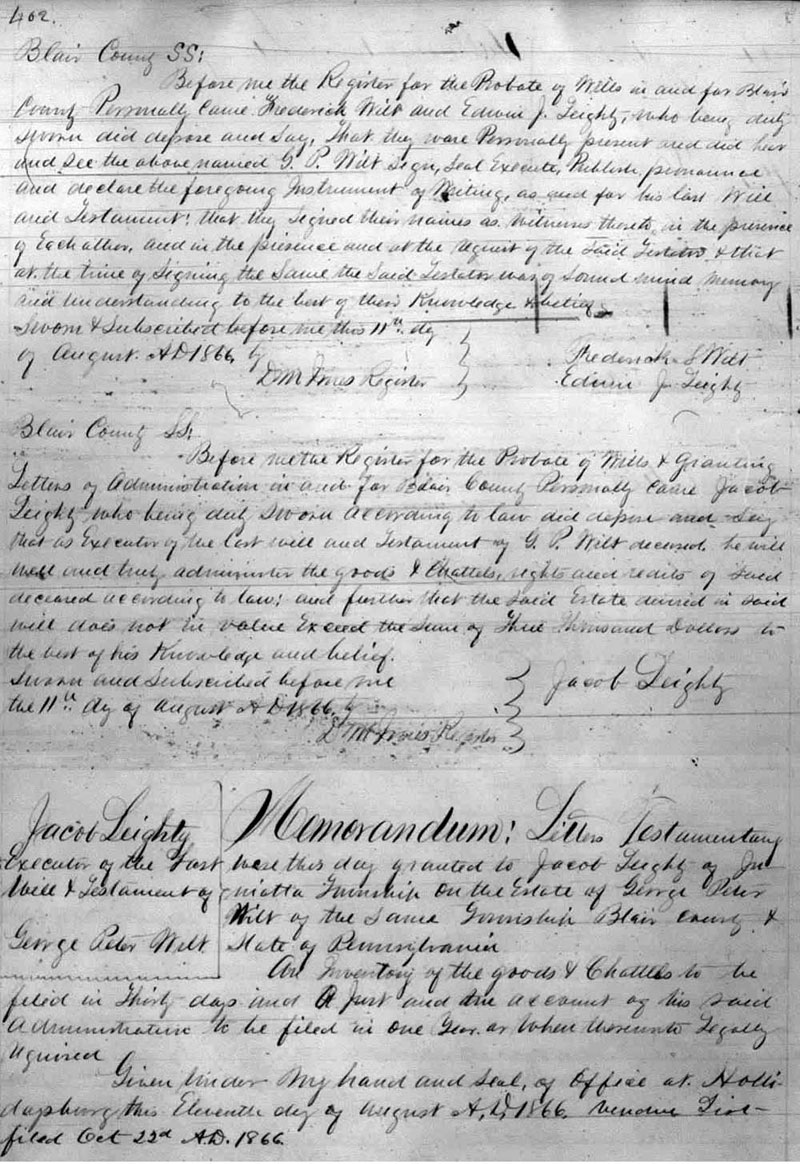 402.
Blair County SS:
Before me the Register for the Probate of Wills in and for Blair
County Personally Came Frederick Wilt and Edwin J. Leighty, who being duly
sworn did depose and Say, that they were Personally present and did hear
and see the above named G. P. Wilt sign, Seal Execute, Publish, pronounce
and declare the foregoing Instrument of Writing, as and for his last Will
and Testament: that they signed their names as Witnesses thereto, in the presence
of Each other, and in the presence and at the request of the Said Testator & that
at the time of Signing the Same the Said Testator was of Sound mind memory
and Understanding to the best of their Knowledge & belief
Sworn & Subscribed before me, this 11th dy
of August. AD 1866,
D M Jones Register
Frederick S Wilt
Edwin J. Leighty
Blair County SS:
Before me the Register for the Probate of Wills & Granting
Letters of Administration in and for Blair County Personally Came Jacob
Leighty who being duly Sworn According to law did depose and Say
that as Executor of the Last will and Testament of G. P. Wilt deceased. he will
well and truly administer the goods & Chattels, rights and credits of Said
deceased according to law: and further that the Said Estate devised in said
will does not in value Exceed the Sum of Three Thousand Dollars to
the best of his Knowledge and belief.
Sworn and Subscribed before me
the 11th dy of August AD 1866,
D M Jones Register
Jacob Leighty
Jacob Leighty
Executor of the Last
Will & Testament of
George Peter Wilt
Memorandum: Letters Testamentary
were this day granted to Jacob Leighty of Ju-
niatta Township on the Estate of George Peter
Wilt of the Same Township Blair County &
State of Pennsylvania
An Inventory of the goods & Chattels to be
filed in Thirty days and A Just and true account of his said
Administration to be filed in one Year. or When thereunto Legally
required
Given Under My hand and Seal, of Office at Holli-
daysburg this Eleventh dy of August A,D, 1866. Vendue List
filed Oct 22d AD. 1866.